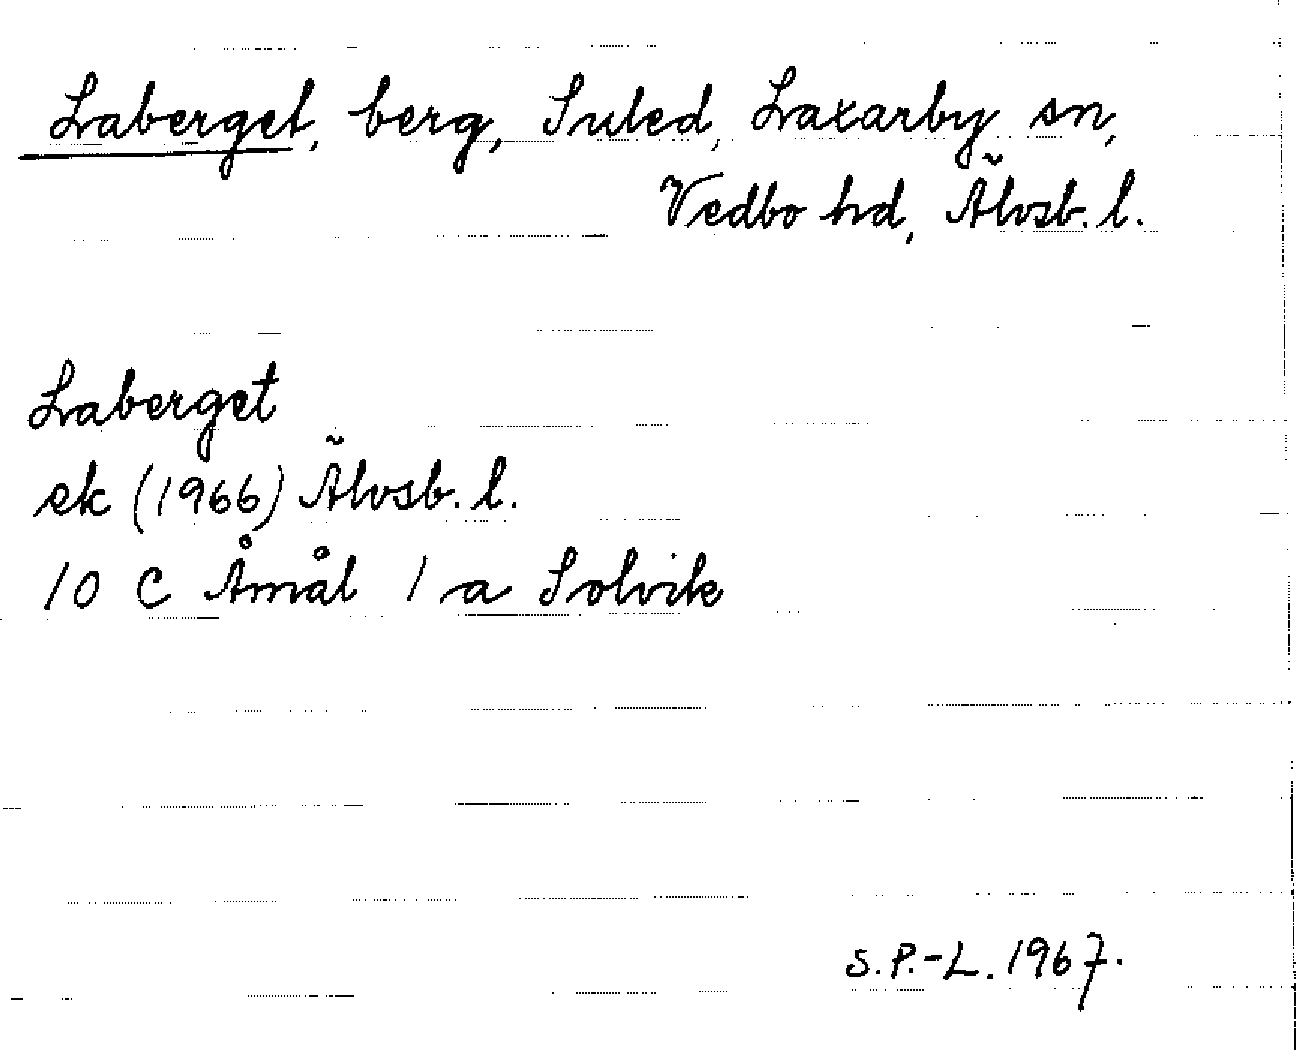 Laberget, berg, Suled, Laxarby sn,
Vedbo hd, Älvsb. l.
Laberget
ek (1966) Älvsb. l.
10 C Åmål 1 a Solvik
S.P.-L. 1967.